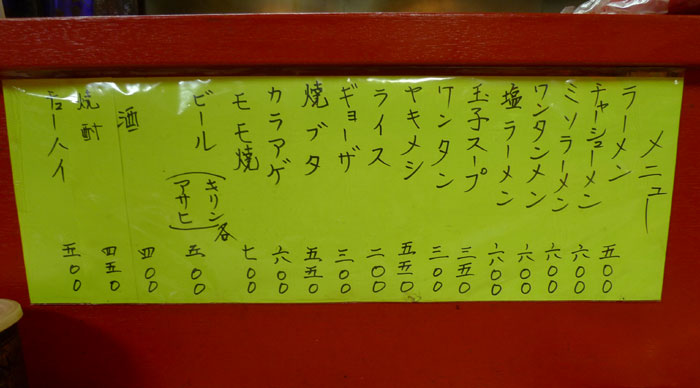 メニュー
ラーメン 五〇〇
チャーシューメン 六〇〇
ミソラーメン 六〇〇
ワンタンメン 六〇〇
塩ラーメン 六〇〇
玉子スープ 三五〇
ワンタン 三〇〇
ヤキメシ 五五〇
ライス 二〇〇
ギョーザ 三〇〇
焼ブタ 五五〇
カラアゲ 六〇〇
モモ焼 七〇〇
ビール（キリン アサヒ）各 五〇〇
酒 四〇〇
焼酎 四五〇
チューハイ 五〇〇